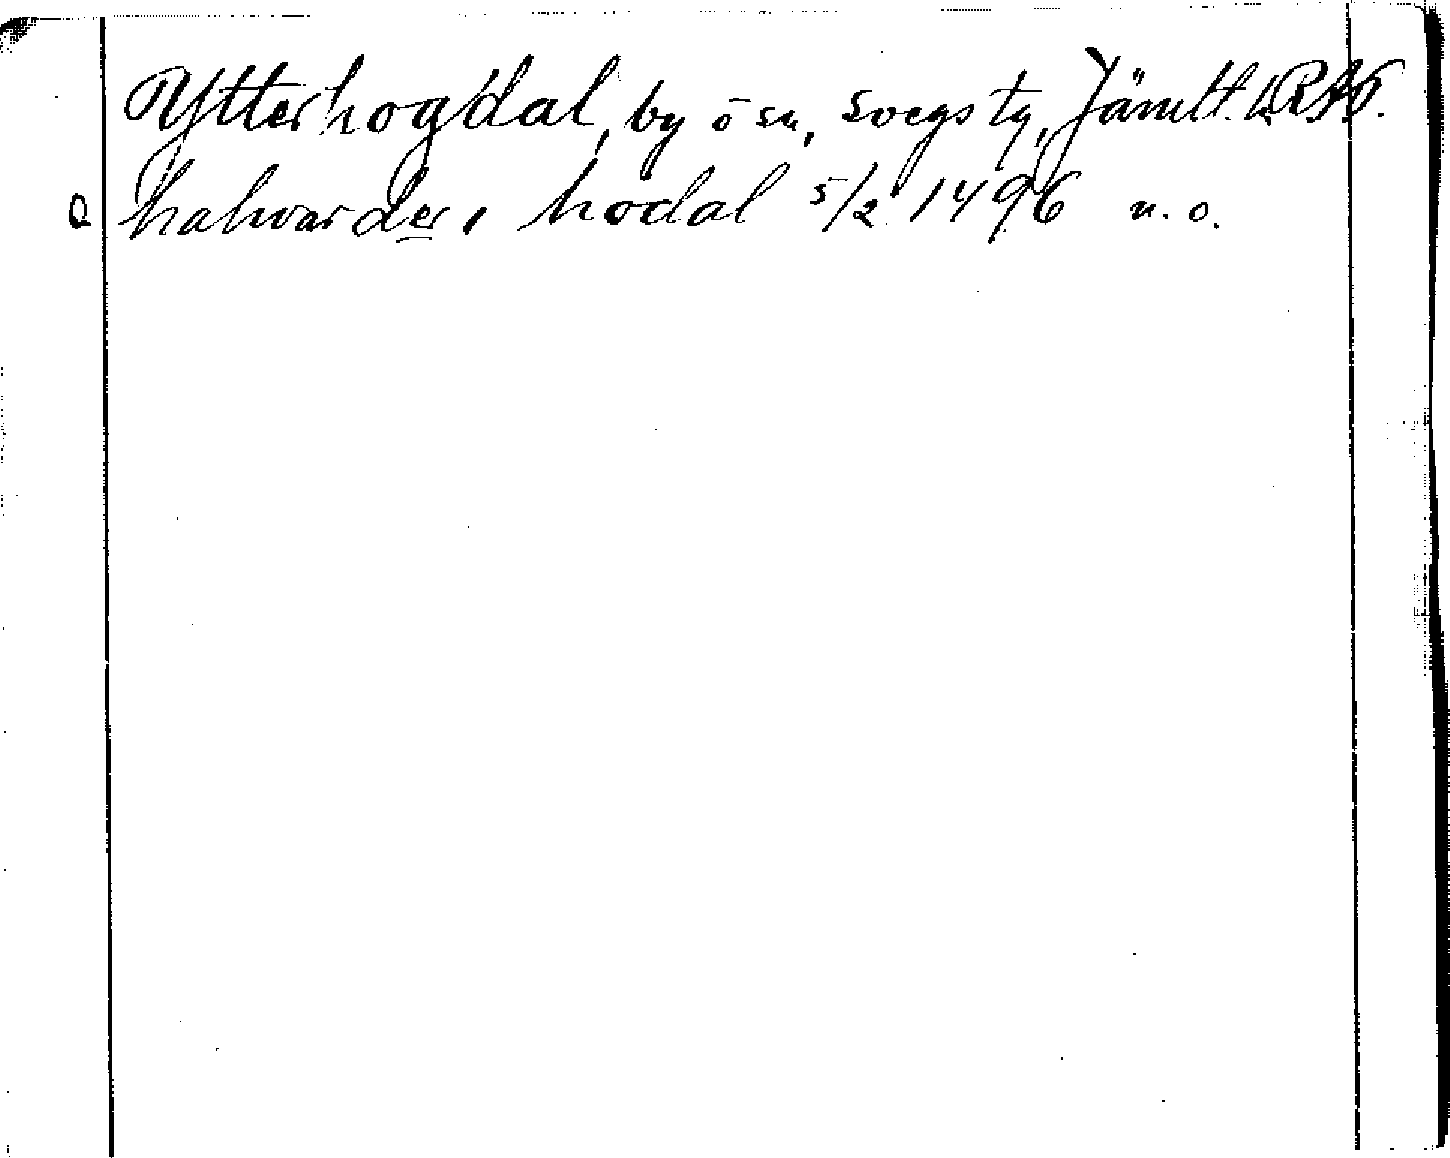 Ytterhogdal, by ö sn, Svegs tg, Jämtl. l. RAP.
a halvarder i hodal 5/2 1496 n. o.